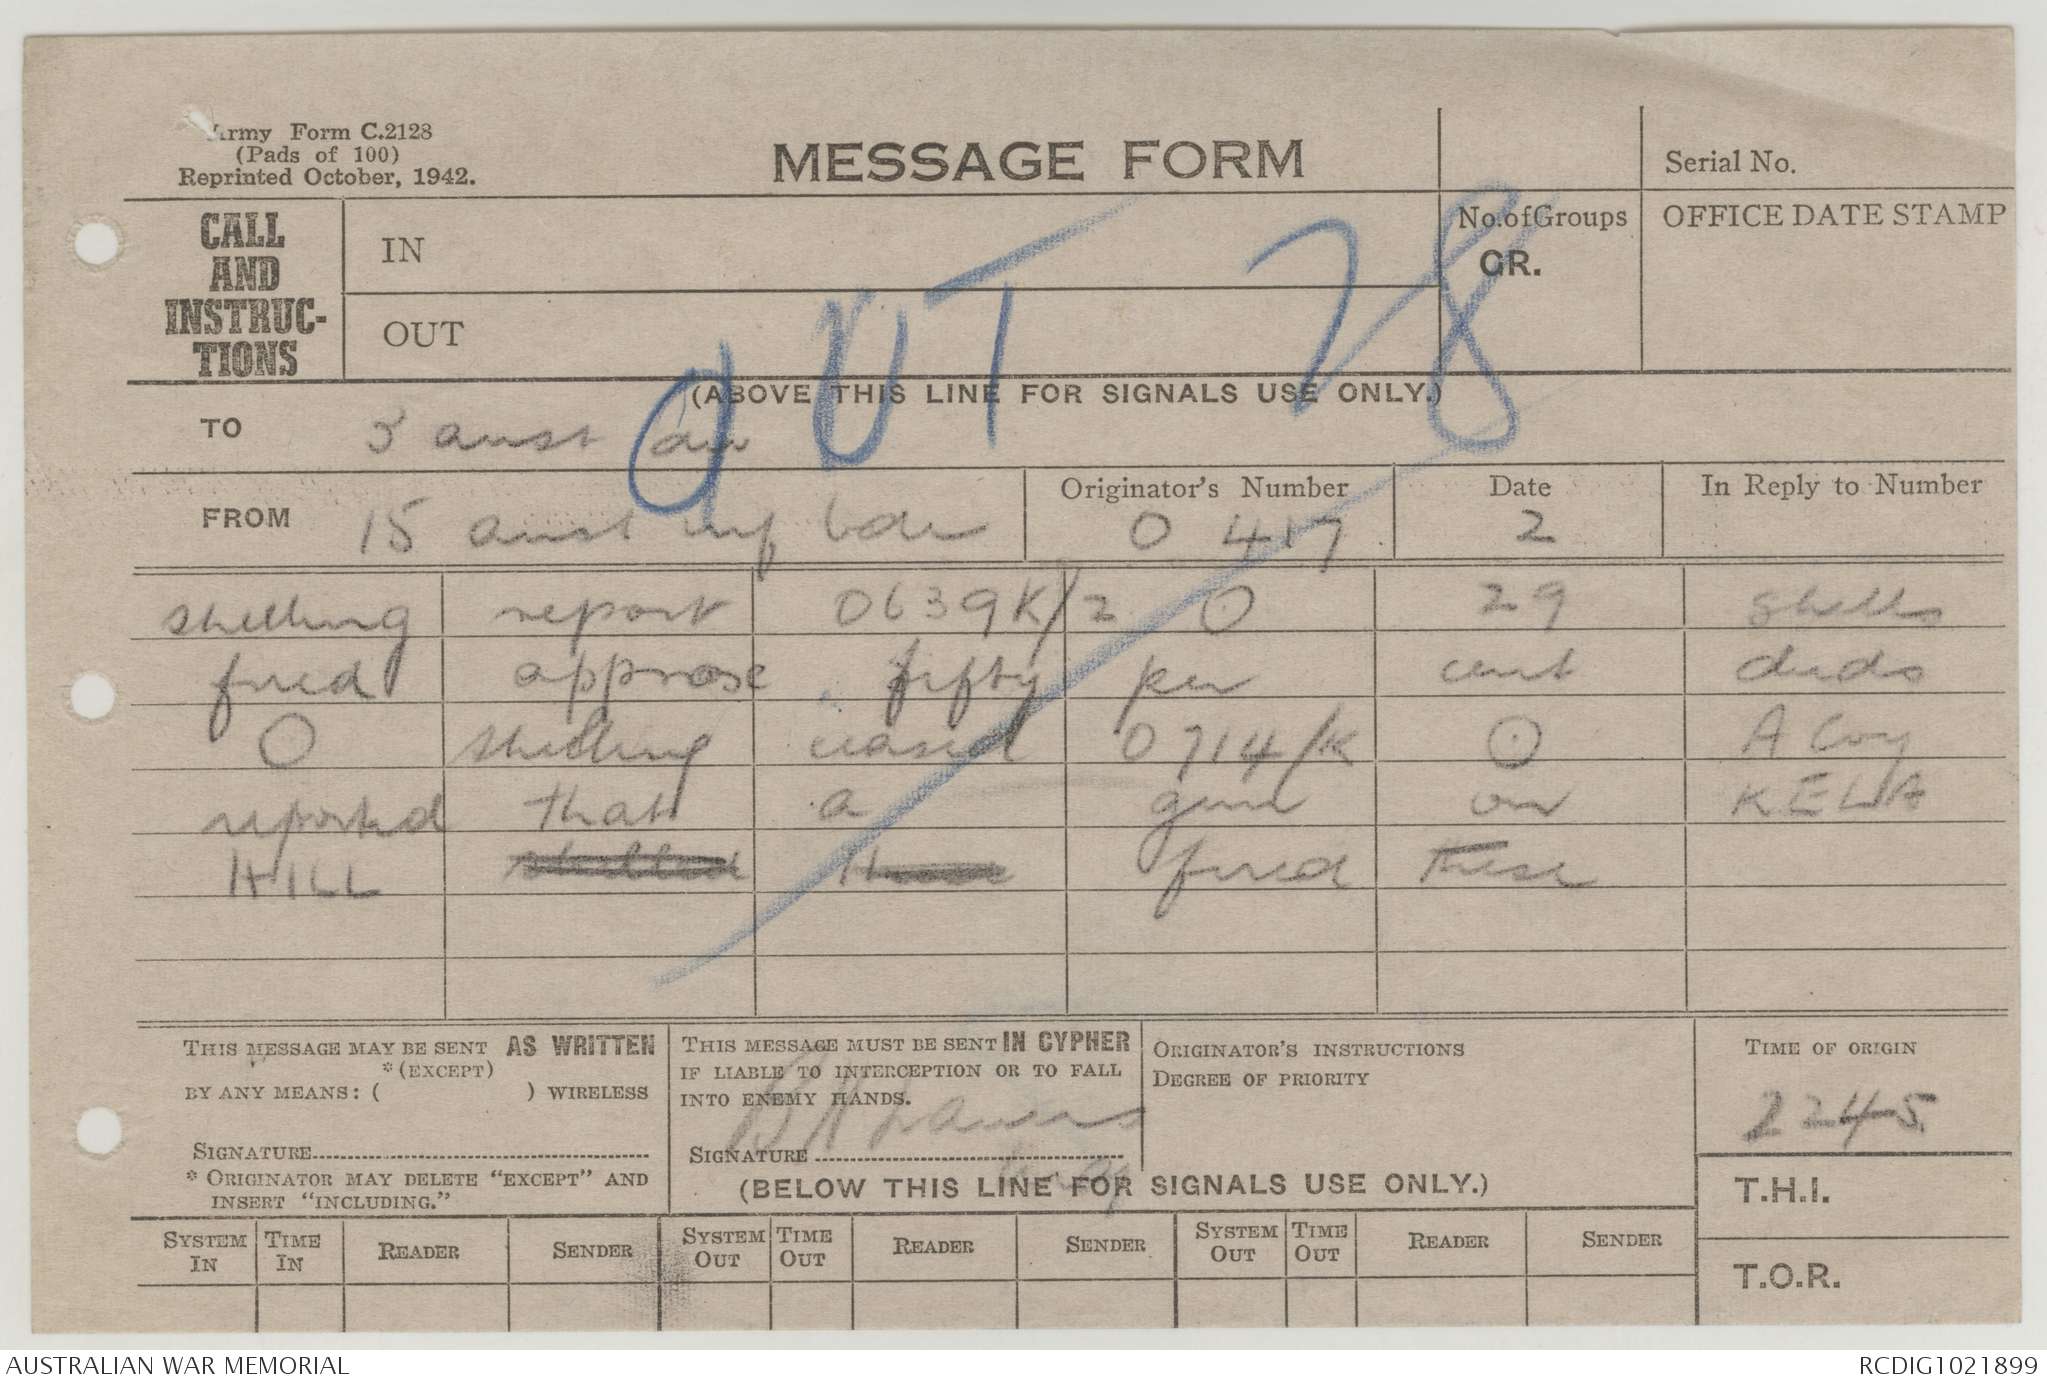 Army Form C.2128
(Pads of 100)
Reprinted October, 1942.
MESSAGE FORM
Serial No.
CALL
AND
INSTRUC-
TIONS
IN
OUT
No. of Groups
GR.
OFFICE DATE STAMP
OUT 28
(ABOVE THIS LINE FOR SIGNALS USE ONLY.)
TO 5 aust div
FROM 15 aust inf bde
Originator's Number
0 417
Date
2
In Reply to Number
shelling report 0639K/2 O 29 shells
fired approx . fifty per cent duds
O shelling ceased 0714/K O A Coy
reported that a gun on KELA
HILL shelled these fired these
THIS MESSAGE MAY BE SENT AS WRITTEN
*(EXCEPT)
BY ANY MEANS: ( ) WIRELESS
SIGNATURE
* ORIGINATOR MAY DELETE "EXCEPT" AND
INSERT "INCLUDING."
THIS MESSAGE MUST BE SENT IN CYPHER
IF LIABLE TO INTERCEPTION OR TO FALL
INTO ENEMY HANDS.
SIGNATURE
ORIGINATOR'S INSTRUCTIONS
DEGREE OF PRIORITY
TIME OF ORIGIN
2245
T.H.I.
T.O.R.
(BELOW THIS LINE FOR SIGNALS USE ONLY.)
SYSTEM IN TIME IN READER SENDER SYSTEM OUT TIME OUT READER SENDER SYSTEM OUT TIME OUT READER SENDER
AUSTRALIAN WAR MEMORIAL
RCDIG1021899